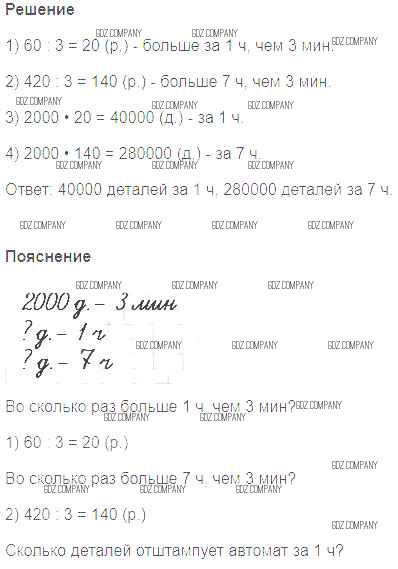 Решение
GDZ.COMPANY GDZ.COMPANY
1) 60 : 3 = 20 (р.) - больше за 1 ч, чем 3 мин. GDZ.COMPANY
2) 420 : 3 = 140 (р.) - больше 7 ч, чем 3 мин.
GDZ.COMPANY GDZ.COMPANY GDZ.COMPANY
3) 2000 • 20 = 40000 (д.) - за 1 ч.
4) 2000 • 140 = 280000 (д.) - за 7 ч.
GDZ.COMPANY GDZ.COMPANY GDZ.COMPANY
Ответ: 40000 деталей за 1 ч, 280000 деталей за 7 ч.
GDZ.COMPANY GDZ.COMPANY GDZ.COMPANY GDZ.COMPANY
Пояснение
GDZ.COMPANY GDZ.COMPANY GDZ.COMPANY
2000 д. – 3 мин
? д. – 1 ч
GDZ.COMPANY GDZ.COMPANY GDZ.COMPANY
? д. – 7 ч
Во сколько раз больше 1 ч, чем 3 мин? GDZ.COMPANY
GDZ.COMPANY GDZ.COMPANY
1) 60 : 3 = 20 (р.)
GDZ.COMPANY
Во сколько раз больше 7 ч, чем 3 мин?
GDZ.COMPANY GDZ.COMPANY GDZ.COMPANY
2) 420 : 3 = 140 (р.)
GDZ.COMPANY
Сколько деталей отштампует автомат за 1 ч?